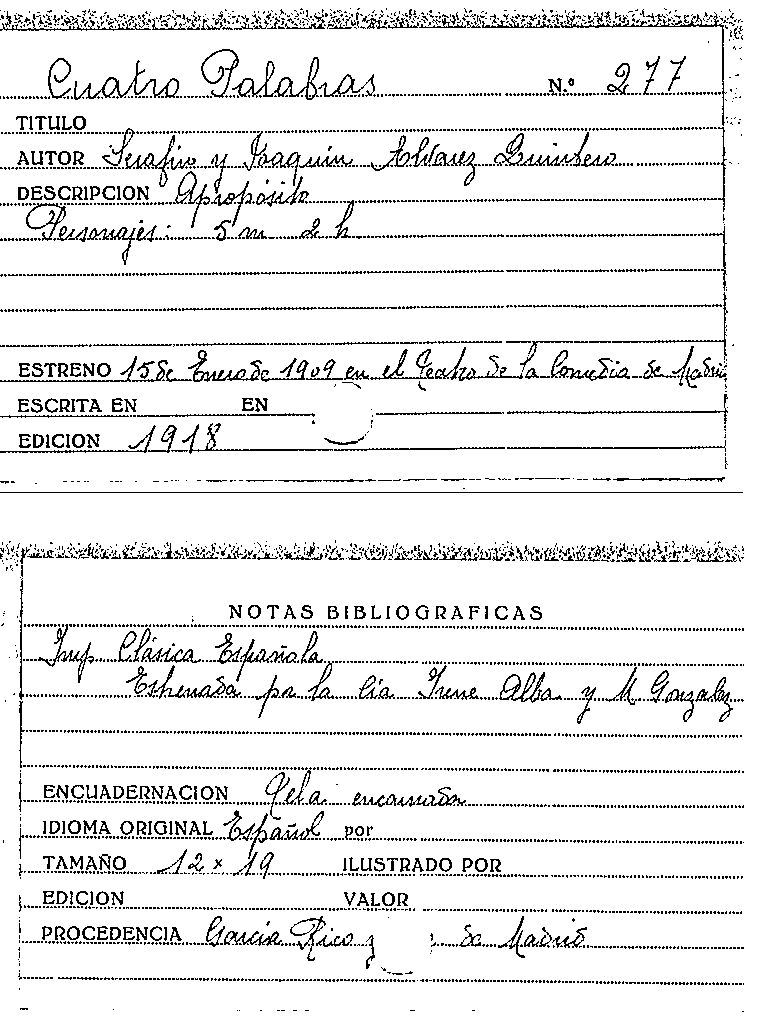 Cuatro Palabras N.º 277
TITULO
AUTOR Serafin y Joaquin Alvarez Quintero
DESCRIPCION Apropósito
Personajes: 5 m 2 h
ESTRENO 15 de Enero de 1909 en el Teatro de la Comedia de Madrid
ESCRITA EN EN
EDICION 1918
NOTAS BIBLIOGRAFICAS
Imp Clásica Española
Estrenada por la Cia Irene Alba y M Gonzalez
ENCUADERNACION Tela encarnada
IDIOMA ORIGINAL Español por
TAMAÑO 12 x 19 ILUSTRADO POR
EDICION VALOR
PROCEDENCIA Garcia Rico y de Madrid